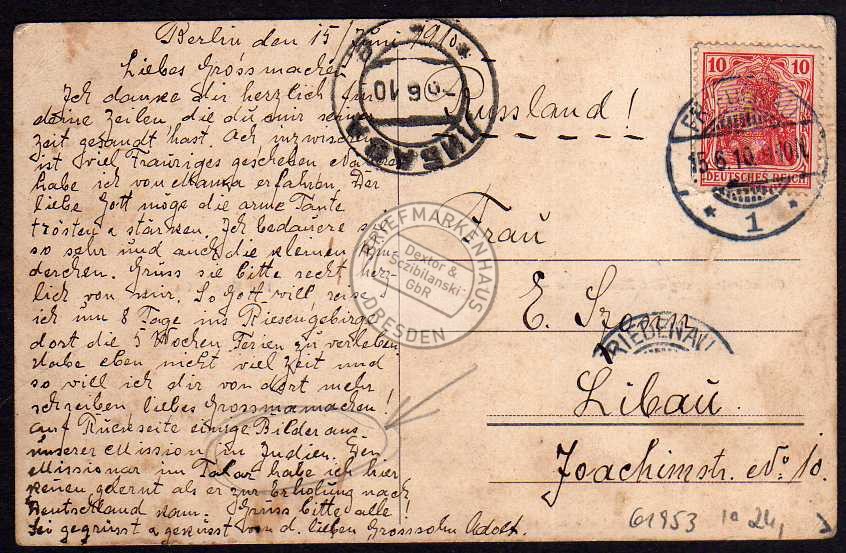 Berlin den 15 Juni 1910.
Liebes Grossmachen,
Ich danke dir herzlich für
deine Zeilen die du mir
Zeit gesandt hast. Ach inzwischen
ist viel Trauriges geschehen
habe ich von Mama erfahren. Der
liebe Gott möge die arme Tante
trösten & stärken. Ich bedauere sie
so sehr und auch die kleinen Kin-
derchen. Grüss sie bitte recht herz-
lich von mir. So Gott will, reise
ich um 8 Tage ins Riesengebirge
dort die 5 Wochen Ferien zu verleben.
Habe eben nicht viel Zeit und
so will ich dir von dort mehr
schreiben liebes Grossmamachen!
Auf Rückseite einige Bilder aus
unserer Mission in Indien. Den
Missionar im Talar habe ich hier
kennen gelernt als er zur Erholung nach
Deutschland kam. Grüss bitte alle!
Sei gegrüsst & geküsst von d. lieben Grosssohn Adolf.
Russland!
Frau
E.
Libau.
Joachimstr. No. 10.
ЛИБАВА
6 10
10 10
DEUTSCHES REICH
15.6.10
* 1 *
FRIEDENAU
BRIEFMARKENHAUS
Dextor &
Sezibilanski
GbR
DRESDEN
61953 1a 24,